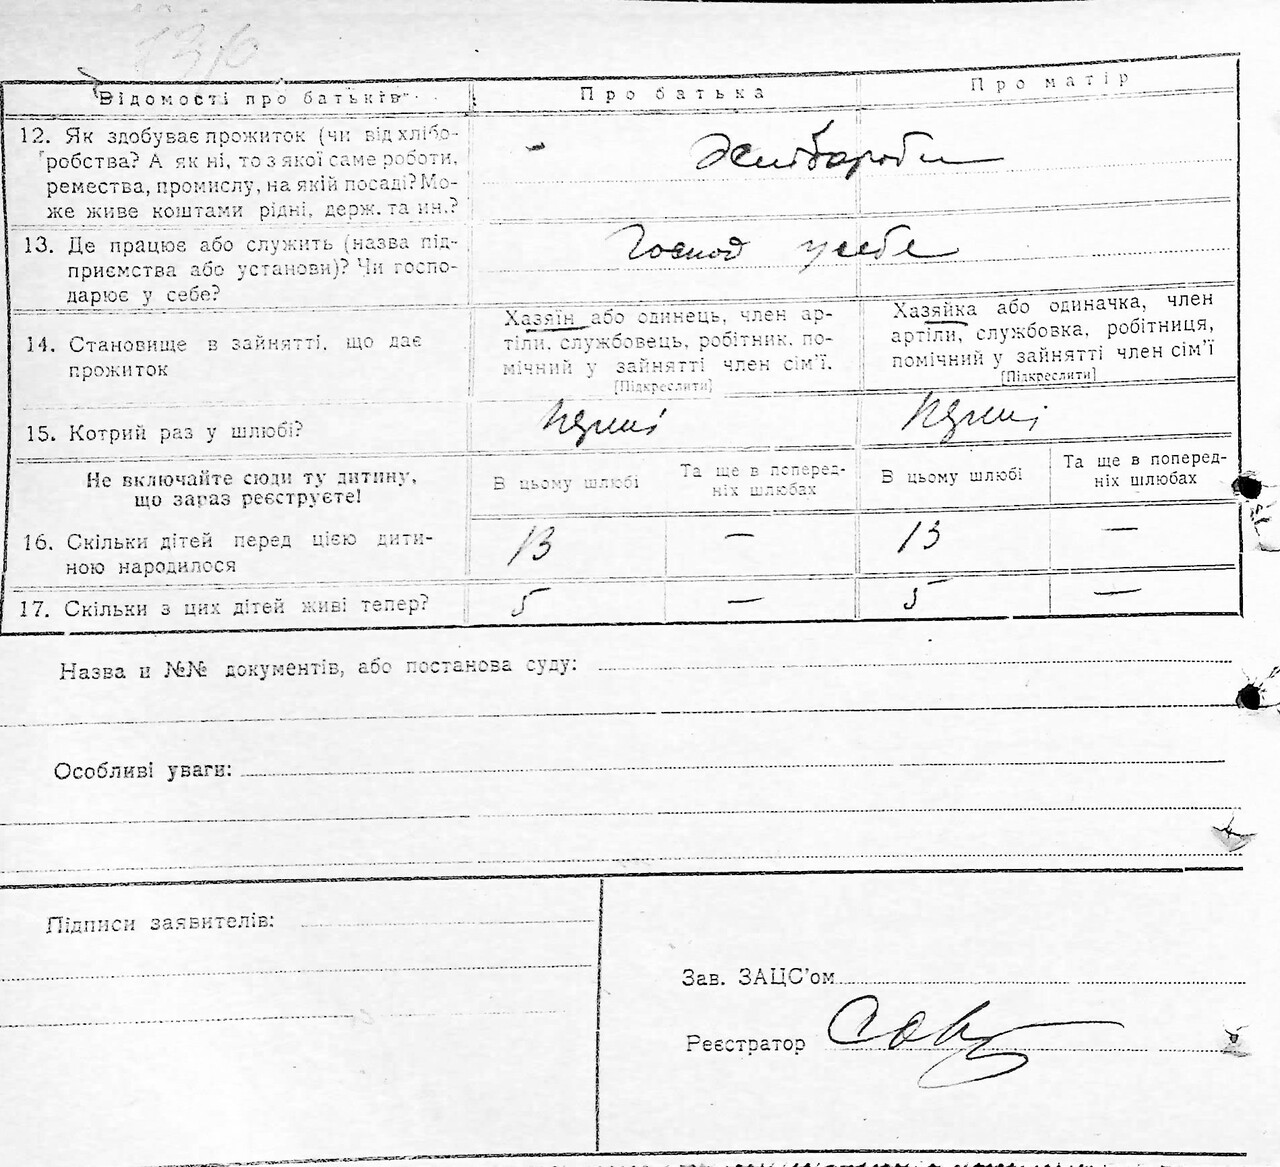 136
Відомості про батьків
Про батька
Про матір
12. Як здобуває прожиток (чи від хлібо-
робства? А як ні, то з якої саме роботи,
ремества, промислу, на якій посаді? Мо-
же живе коштами рідні, держ. та ин.?
13. Де працює або служить (назва під-
приємства або установи)? Чи госпо-
дарює у себе?
Господ у себе
14. Становище в зайнятті, що дає
прожиток
Хазяїн або одинець, член ар-
тілі, службовець, робітник, по-
мічний у зайнятті член сім'ї.
[Підкреслити]
Хазяйка або одиначка, член
артіли, службовка, робітниця,
помічний у зайнятті член сім'ї
[Підкреслити]
15. Котрий раз у шлюбі?
Перший
Перший
Не включайте сюди ту дитину,
що зараз реєструєте!
В цьому шлюбі
Та ще в поперед-
ніх шлюбах
В цьому шлюбі
Та ще в поперед-
ніх шлюбах
16. Скільки дітей перед цією дити-
ною народилося
13 — 13 —
17. Скільки з цих дітей живі тепер?
5 — 5 —
Назва и №№ документів, або постанова суду:
Особливі уваги:
Підписи заявителів:
Зав. ЗАЦС'ом
Реєстратор